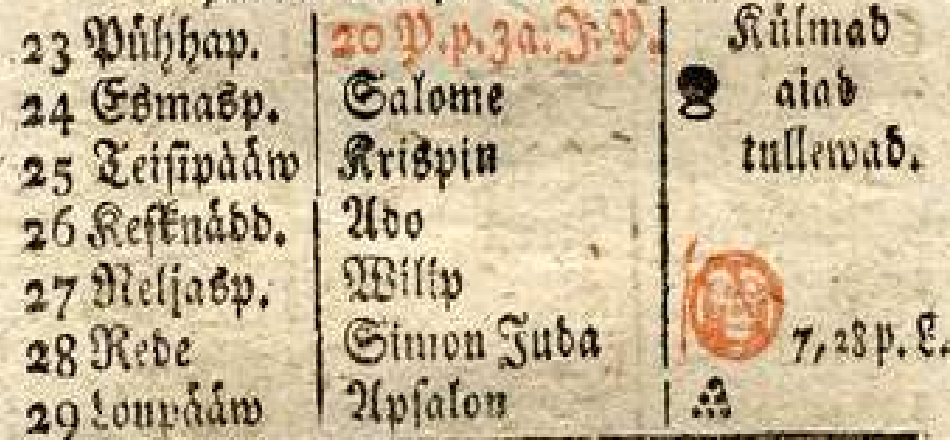 23 Pühhap. 20 P. p. 3a. J. P. Külmad
24 Esmasp. Salome aiad
25 Teisipääw Krispin tullewad.
26 Kesknädd. Ado
27 Neljasp. Wilip
28 Rede Simon Juda 7, 28 p. L.
29 Loupääw Apsalon